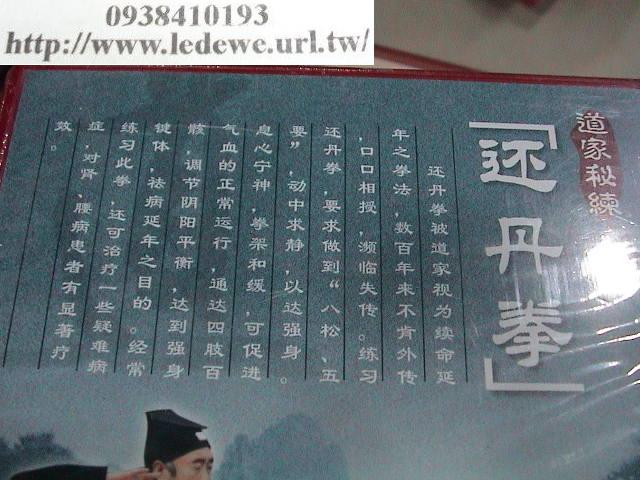 0938410193
http://www.ledewe.url.tw/
道家秘練
「还丹拳」
还丹拳被道家视为续命延
年之拳法，数百年来不肯外传
，口口相授，濒临失传。练习
还丹拳，要求做到“八松、五
要”，动中求静，以达强身。
息心宁神，拳架和缓，可促进
气血的正常运行，通达四肢百
骸，调节阴阳平衡，达到强身
健体，祛病延年之目的。经常
练习此拳，还可治疗一些疑难病
症，对肾，腰病患者有显著疗
效。